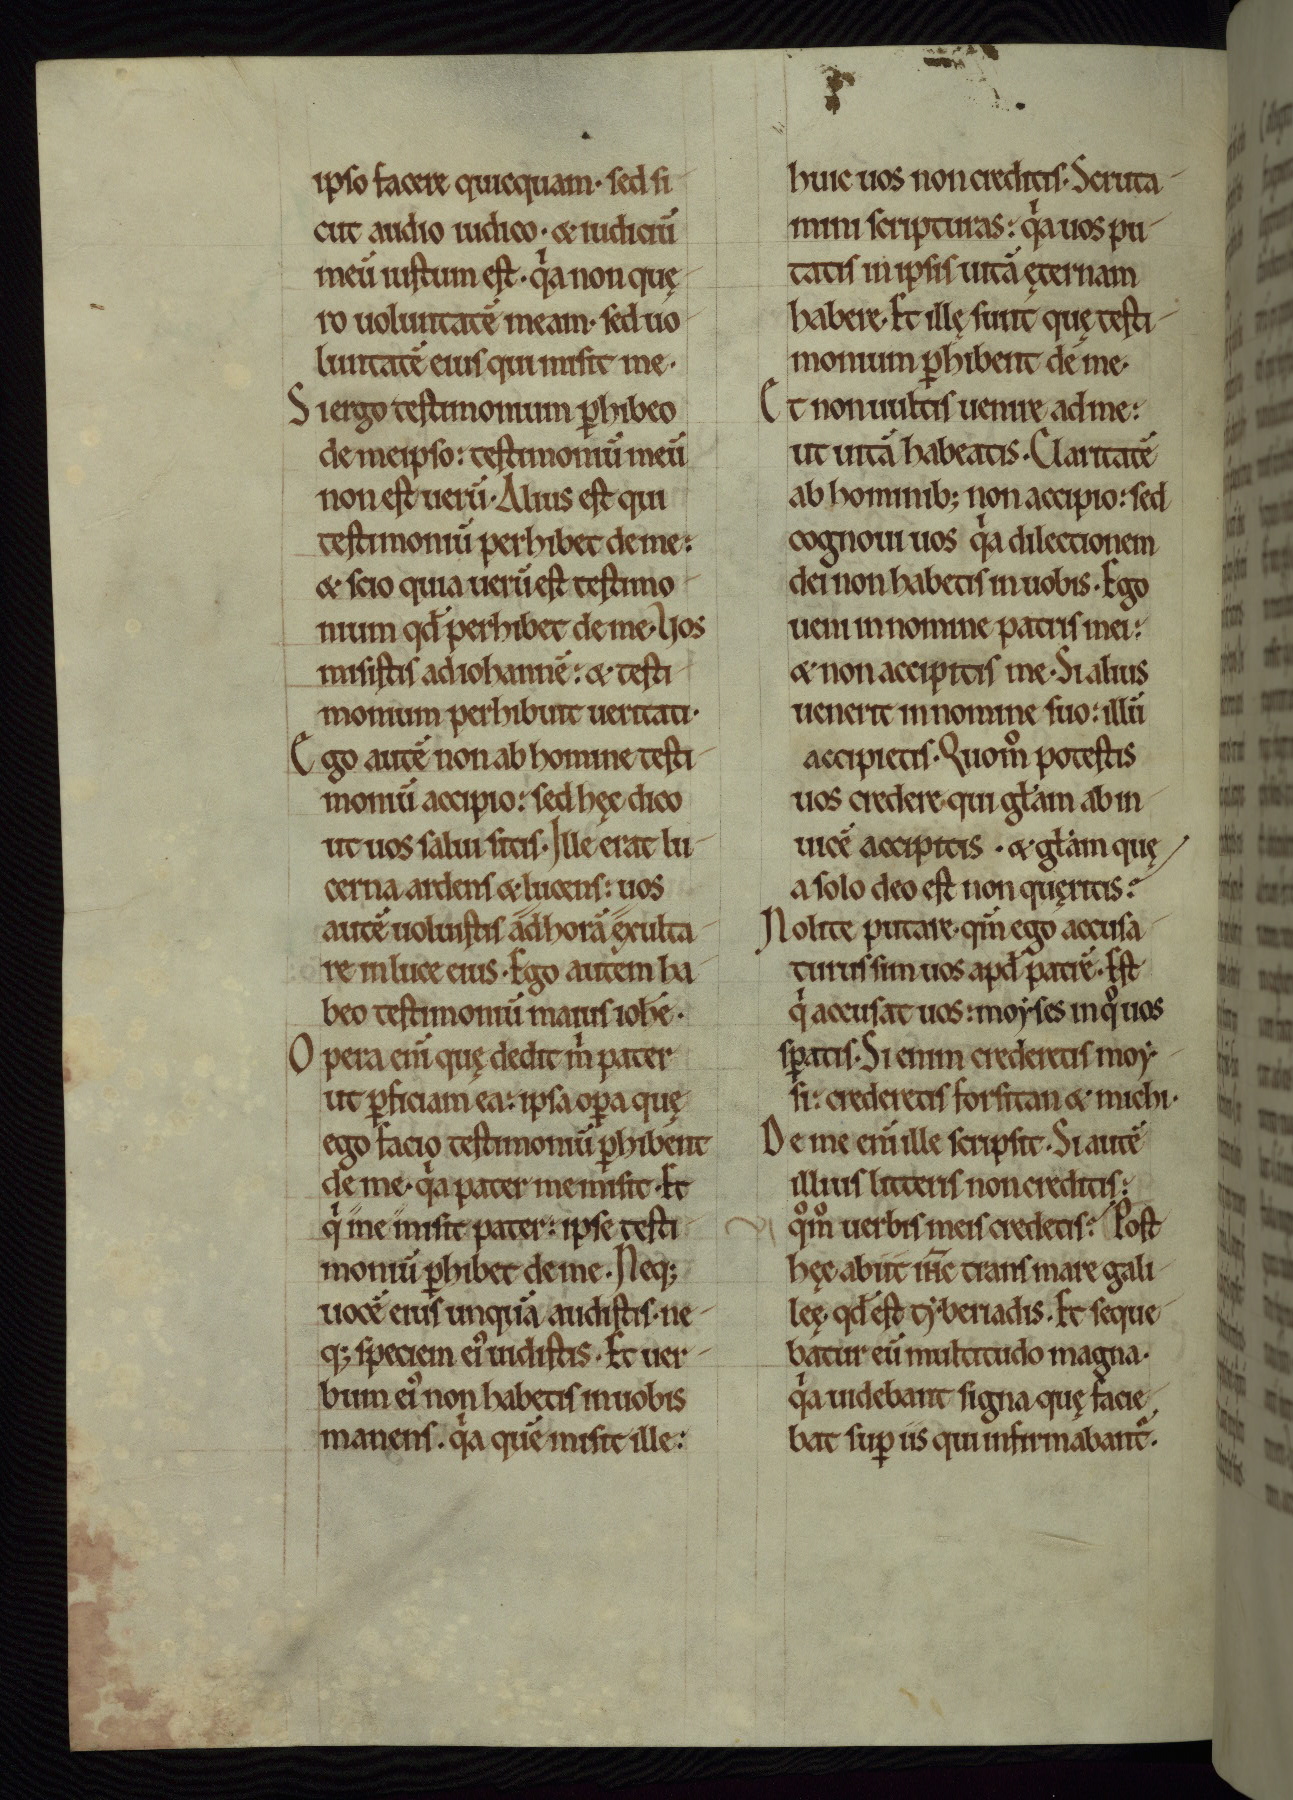 ipso facere quicquam· sed si
cut audio iudico· & iudiciū
meū iustum est· qͥa non quę
ro uoluntatē meam· sed uo
luntatē eius qui misit me·
Si ergo testimonium ꝑhibeo
de meipso: testimoniū meū
non est uerū· Alius est qui
testimoniū perhibet de me:
& scio quia uerū est testimo
nium qđ perhibet de me· Uos
misistis ad iohannē: & testi
monium perhibuit ueritati·
Ego autē non ab homine testi
moniū accipio: sed hęc dico
ut uos salui sitis· Ille erat lu
cerna ardens & lucens: uos
autē uoluistis ad horā exulta
re in luce eius· Ego autem ha
beo testimoniū maius iohe·
Opera eni̅ quę dedit mͥ pater
ut ꝑficiam ea: ipsa oꝑa quę
ego facio testimoniū ꝑhibent
de me· qͥa pater me misit· Et
qͥ me misit pater: ipse testi
moniū ꝑhibet de me· Neq;
uocē eius unquā audistis· ne
q; speciem ei᾽ uidistis· Et uer
bum ei᾽ non habetis in uobis
manens· qͥa quē misit ille:
huic uos non creditis· Scruta
mini scripturas: qͥa uos pu
tatis in ipsis uitā ęternam
habere· Et illę sunt quę testi
monium ꝑhibent de me·
Et non uultis uenire ad me:
ut uitā habeatis· Claritatē
ab hominib; non accipio: sed
cognoui uos qͥa dilectionem
dei non habetis in uobis· Ego
ueni in nomine patris mei:
& non accipitis me· Si alius
uenerit in nomine suo: illū
accipietis· Quom̊ potestis
uos credere· qui gl̅am ab in
uicē accipitis · & gl̅am quę
a solo deo est non quęritis:
Nolite putare· qm̅ ego accusa
turus sim uos apđ patrē· Est
qͥ accusat uos: moẏses in qͦ uos
sꝑatis· Si enim crederetis moẏ
si: crederetis forsitan & michi·
De me eni̅ ille scripsit· Si autē
illius litteris non creditis:
qͦm̊ uerbis meis credetis: Post
hęc abiit ih̅c trans mare gali
leę· qđ est tẏberiadis· Et seque
batur eū multitudo magna·
qͥa uidebant signa quę facie
bat suꝑ iis qui infirmabant᷑·